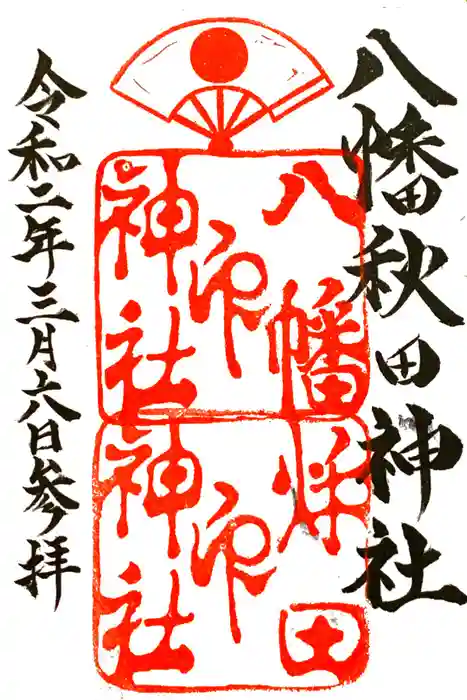 八幡秋田神社
八幡
神社
印
秌田
神社
印
令和二年三月六日参拝